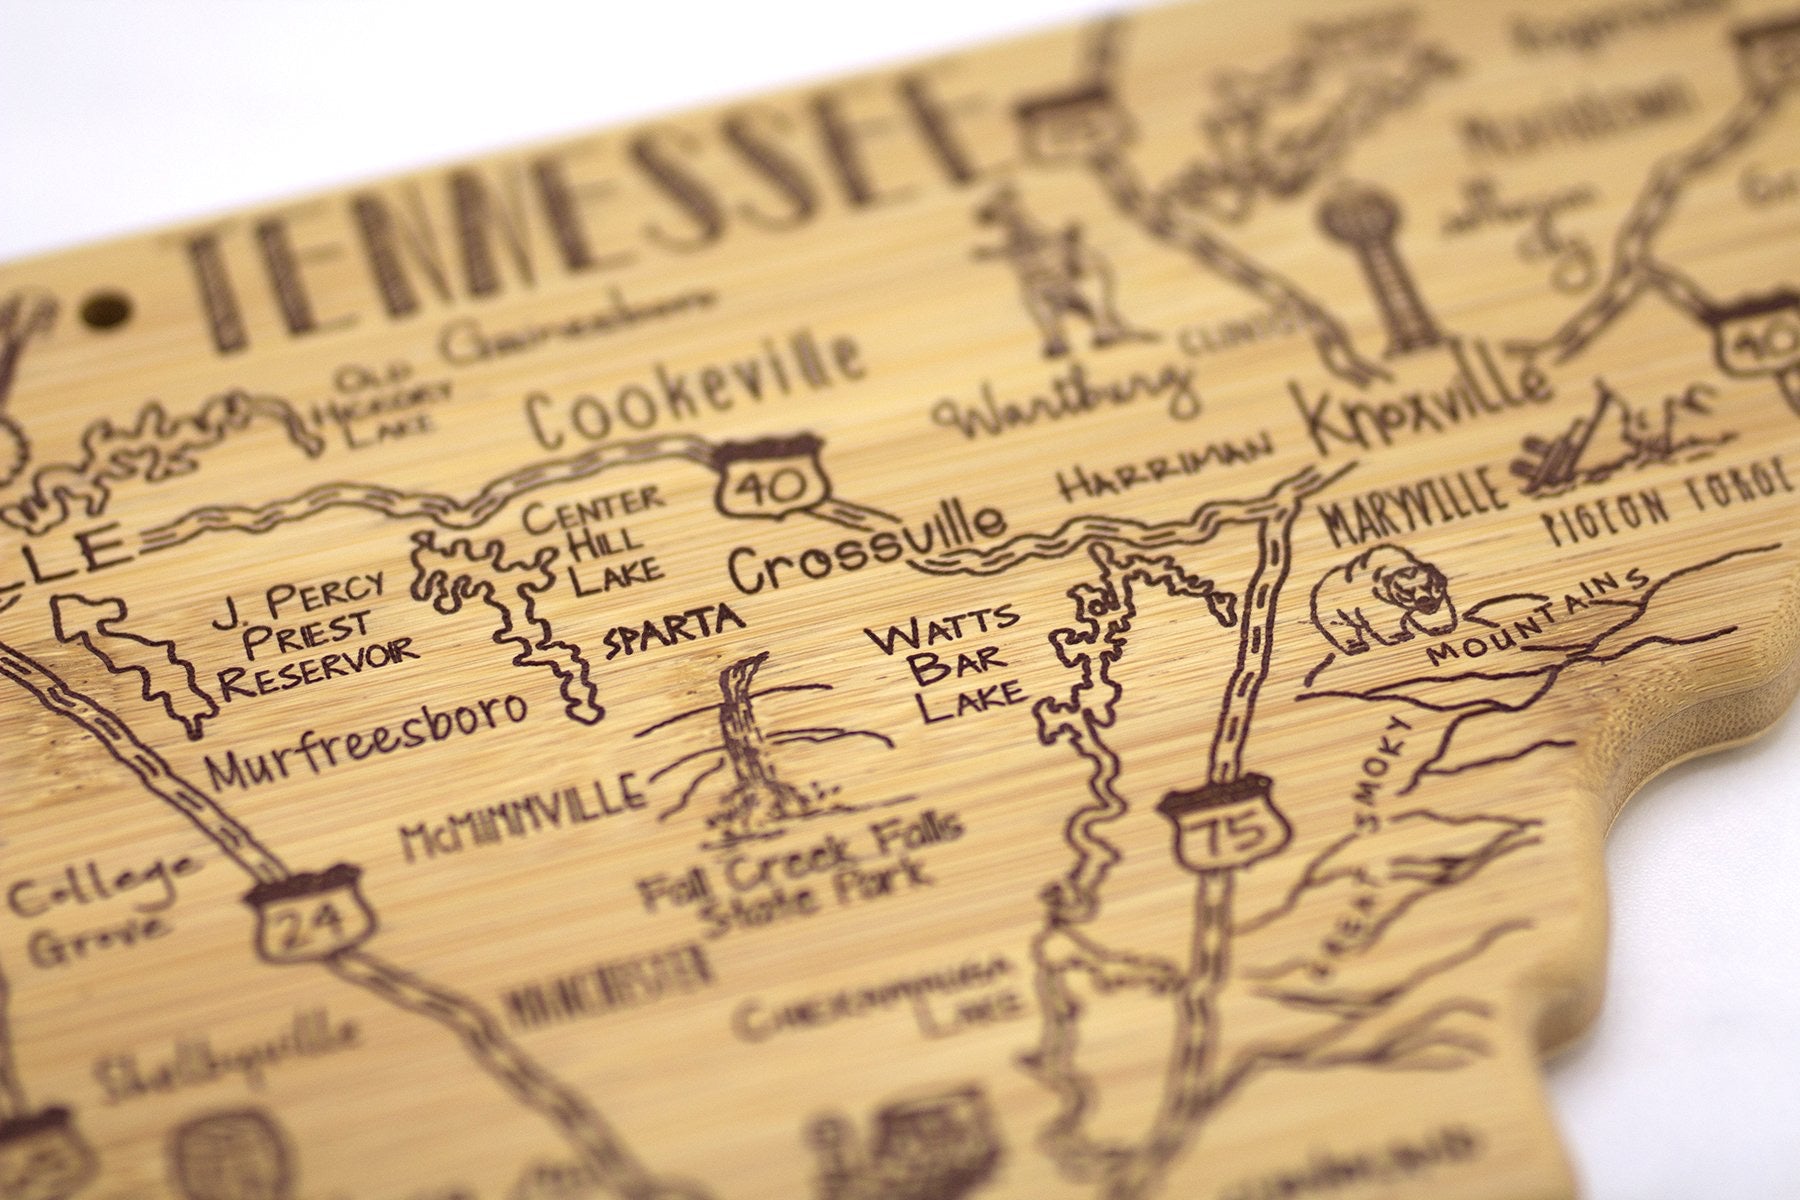 TENNESSEE
Gainesboro
OLD
HICKORY
LAKE
Cookeville
Wartburg
CLINTON
Knoxville
Morristown
40
40
HARRIMAN
MARYVILLE
PIGEON FORGE
LLE
CENTER
HILL
LAKE
Crossville
J. PERCY
PRIEST
RESERVOIR
SPARTA
WATTS
BAR
LAKE
GREAT SMOKY MOUNTAINS
Murfreesboro
McMINNVILLE
75
Fall Creek Falls
State Park
College
Grove
24
MANCHESTER
CHICKAMAUGA
LAKE
Shelbyville